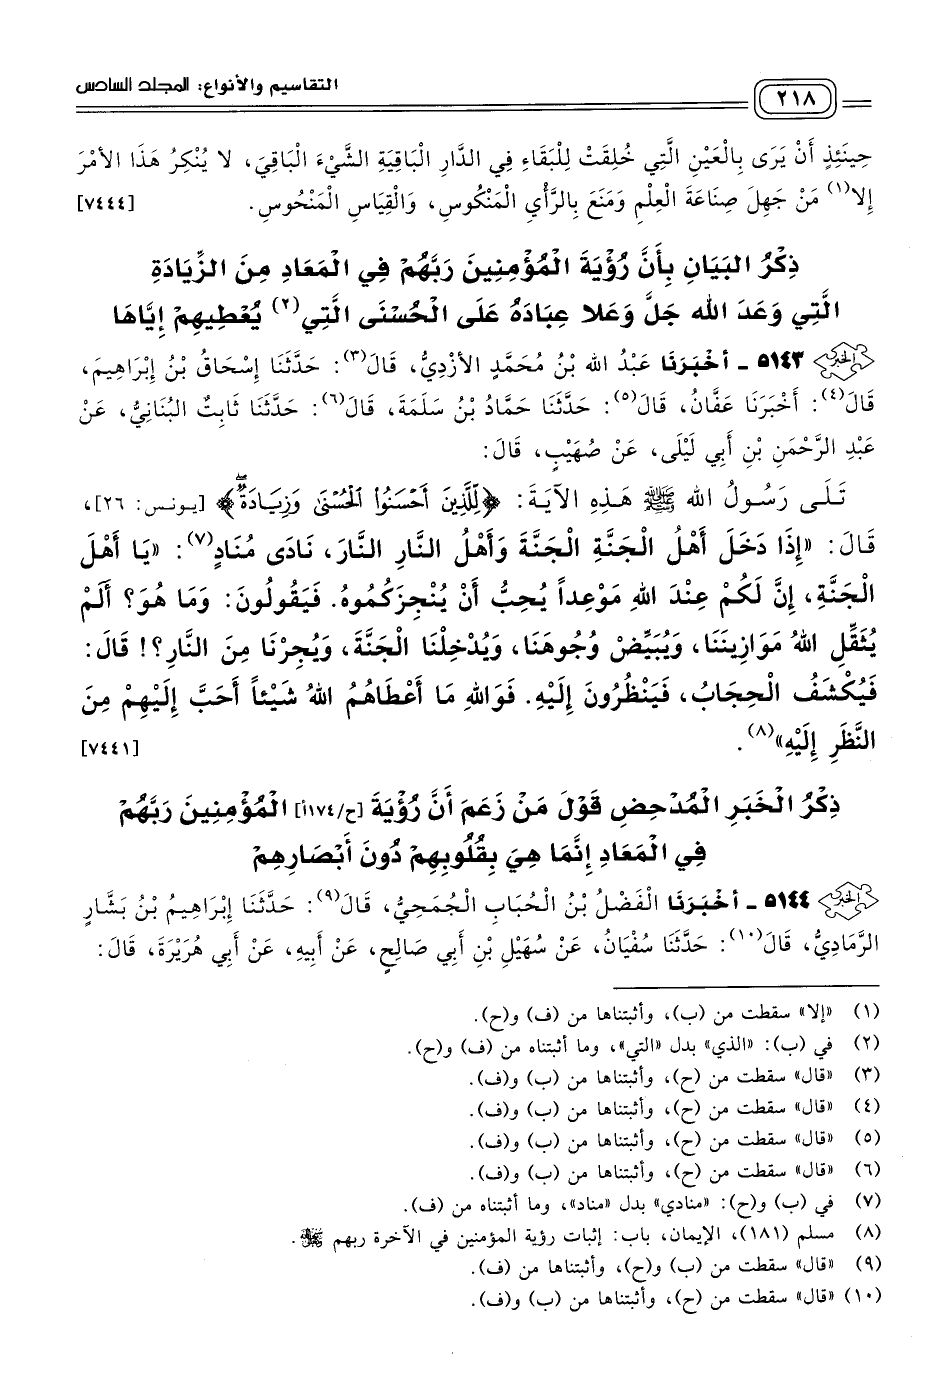 ٢١٨
التقاسيم والأنواع: المجلد السادس
حِينَئِذٍ أَنْ يَرَى بِالْعَيْنِ الَّتِي خُلِقَتْ لِلْبَقَاءِ فِي الدَّارِ الْبَاقِيَةِ الشَّيْءَ الْبَاقِيَ، لا يُنْكِرُ هَذَا الأَمْرَ
إِلا(١) مَنْ جَهِلَ صِنَاعَةَ الْعِلْمِ وَمَنَعَ بِالرَّأْيِ الْمَنْكُوسِ، وَالْقِيَاسِ الْمَنْحُوسِ. [٧٤٤٤]
ذِكْرُ البَيَانِ بِأَنَّ رُؤْيَةَ الْمُؤْمِنِينَ رَبَّهُمْ فِي الْمَعَادِ مِنَ الزِّيَادَةِ
الَّتِي وَعَدَ الله جَلَّ وَعَلا عِبَادَهُ عَلَى الْحُسْنَى الَّتِي(٢) يُعْطِيهِمْ إِيَّاهَا
الخبر ٥١٤٣ - أَخْبَرَنَا عَبْدُ الله بْنُ مُحَمَّدٍ الأَزْدِيُّ، قَالَ(٣): حَدَّثَنَا إِسْحَاقُ بْنُ إِبْرَاهِيمَ،
قَالَ(٤): أَخْبَرَنَا عَفَّانُ، قَالَ(٥): حَدَّثَنَا حَمَّادُ بْنُ سَلَمَةَ، قَالَ(٦): حَدَّثَنَا ثَابِتٌ البُنَانِيُّ، عَنْ
عَبْدِ الرَّحْمَنِ بْنِ أَبِي لَيْلَى، عَنْ صُهَيْبٍ، قَالَ:
تَلَى رَسُولُ الله ﷺ هَذِهِ الآيَةَ: ﴿لِّلَّذِينَ أَحْسَنُوا۟ الْحُسْنَىٰ وَزِيَادَةٌۖ﴾ [يونس: ٢٦]،
قَالَ: «إِذَا دَخَلَ أَهْلُ الْجَنَّةِ الْجَنَّةَ وَأَهْلُ النَّارِ النَّارَ، نَادَى مُنَادٍ(٧): «يَا أَهْلَ
الْجَنَّةِ، إِنَّ لَكُمْ عِنْدَ اللهِ مَوْعِداً يُحِبُّ أَنْ يُنْجِزَكُمُوهُ. فَيَقُولُونَ: وَمَا هُوَ؟ أَلَمْ
يُثَقِّلِ اللهُ مَوَازِينَنَا، وَيُبَيِّضْ وُجُوهَنَا، وَيُدْخِلْنَا الْجَنَّةَ، وَيُجِرْنَا مِنَ النَّارِ؟! قَالَ:
فَيُكْشَفُ الْحِجَابُ، فَيَنْظُرُونَ إِلَيْهِ. فَوَاللهِ مَا أَعْطَاهُمُ اللهُ شَيْئاً أَحَبَّ إِلَيْهِمْ مِنَ
النَّظَرِ إِلَيْهِ»(٨). [٧٤٤١]
ذِكْرُ الْخَبَرِ الْمُدْحِضِ قَوْلَ مَنْ زَعَمَ أَنَّ رُؤْيَةَ [ح/١٧٤أ] الْمُؤْمِنِينَ رَبَّهُمْ
فِي الْمَعَادِ إِنَّمَا هِيَ بِقُلُوبِهِمْ دُونَ أَبْصَارِهِمْ
الخبر ٥١٤٤ - أَخْبَرَنَا الْفَضْلُ بْنُ الْحُبَابِ الْجُمَحِيُّ، قَالَ(٩): حَدَّثَنَا إِبْرَاهِيمُ بْنُ بَشَّارٍ
الرَّمَادِيُّ، قَالَ(١٠): حَدَّثَنَا سُفْيَانُ، عَنْ سُهَيْلِ بْنِ أَبِي صَالِحٍ، عَنْ أَبِيهِ، عَنْ أَبِي هُرَيْرَةَ، قَالَ:
(١) «إلا» سقطت من (ب)، وأثبتناها من (ف) و(ح).
(٢) في (ب): «الذي» بدل «التي»، وما أثبتناه من (ف) و(ح).
(٣) «قال» سقطت من (ح)، وأثبتناها من (ب) و(ف).
(٤) «قال» سقطت من (ح)، وأثبتناها من (ب) و(ف).
(٥) «قال» سقطت من (ح)، وأثبتناها من (ب) و(ف).
(٦) «قال» سقطت من (ح)، وأثبتناها من (ب) و(ف).
(٧) في (ب) و(ح): «منادي» بدل «مناد»، وما أثبتناه من (ف).
(٨) مسلم (١٨١)، الإيمان، باب: إثبات رؤية المؤمنين في الآخرة ربهم ﷻ.
(٩) «قال» سقطت من (ب) و(ح)، وأثبتناها من (ف).
(١٠) «قال» سقطت من (ح)، وأثبتناها من (ب) و(ف).